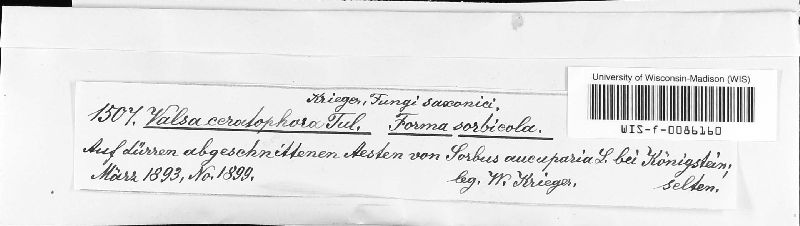 Krieger, Fungi saxonici.
1507. Valsa ceratophora Tul. Forma sorbicola.
Auf dürren abgeschnittenen Aesten von Sorbus aucuparia L. bei Königstein;
März 1893, Nov. 1899. leg. W. Krieger. selten.
University of Wisconsin-Madison (WIS)
WIS-f-0086160